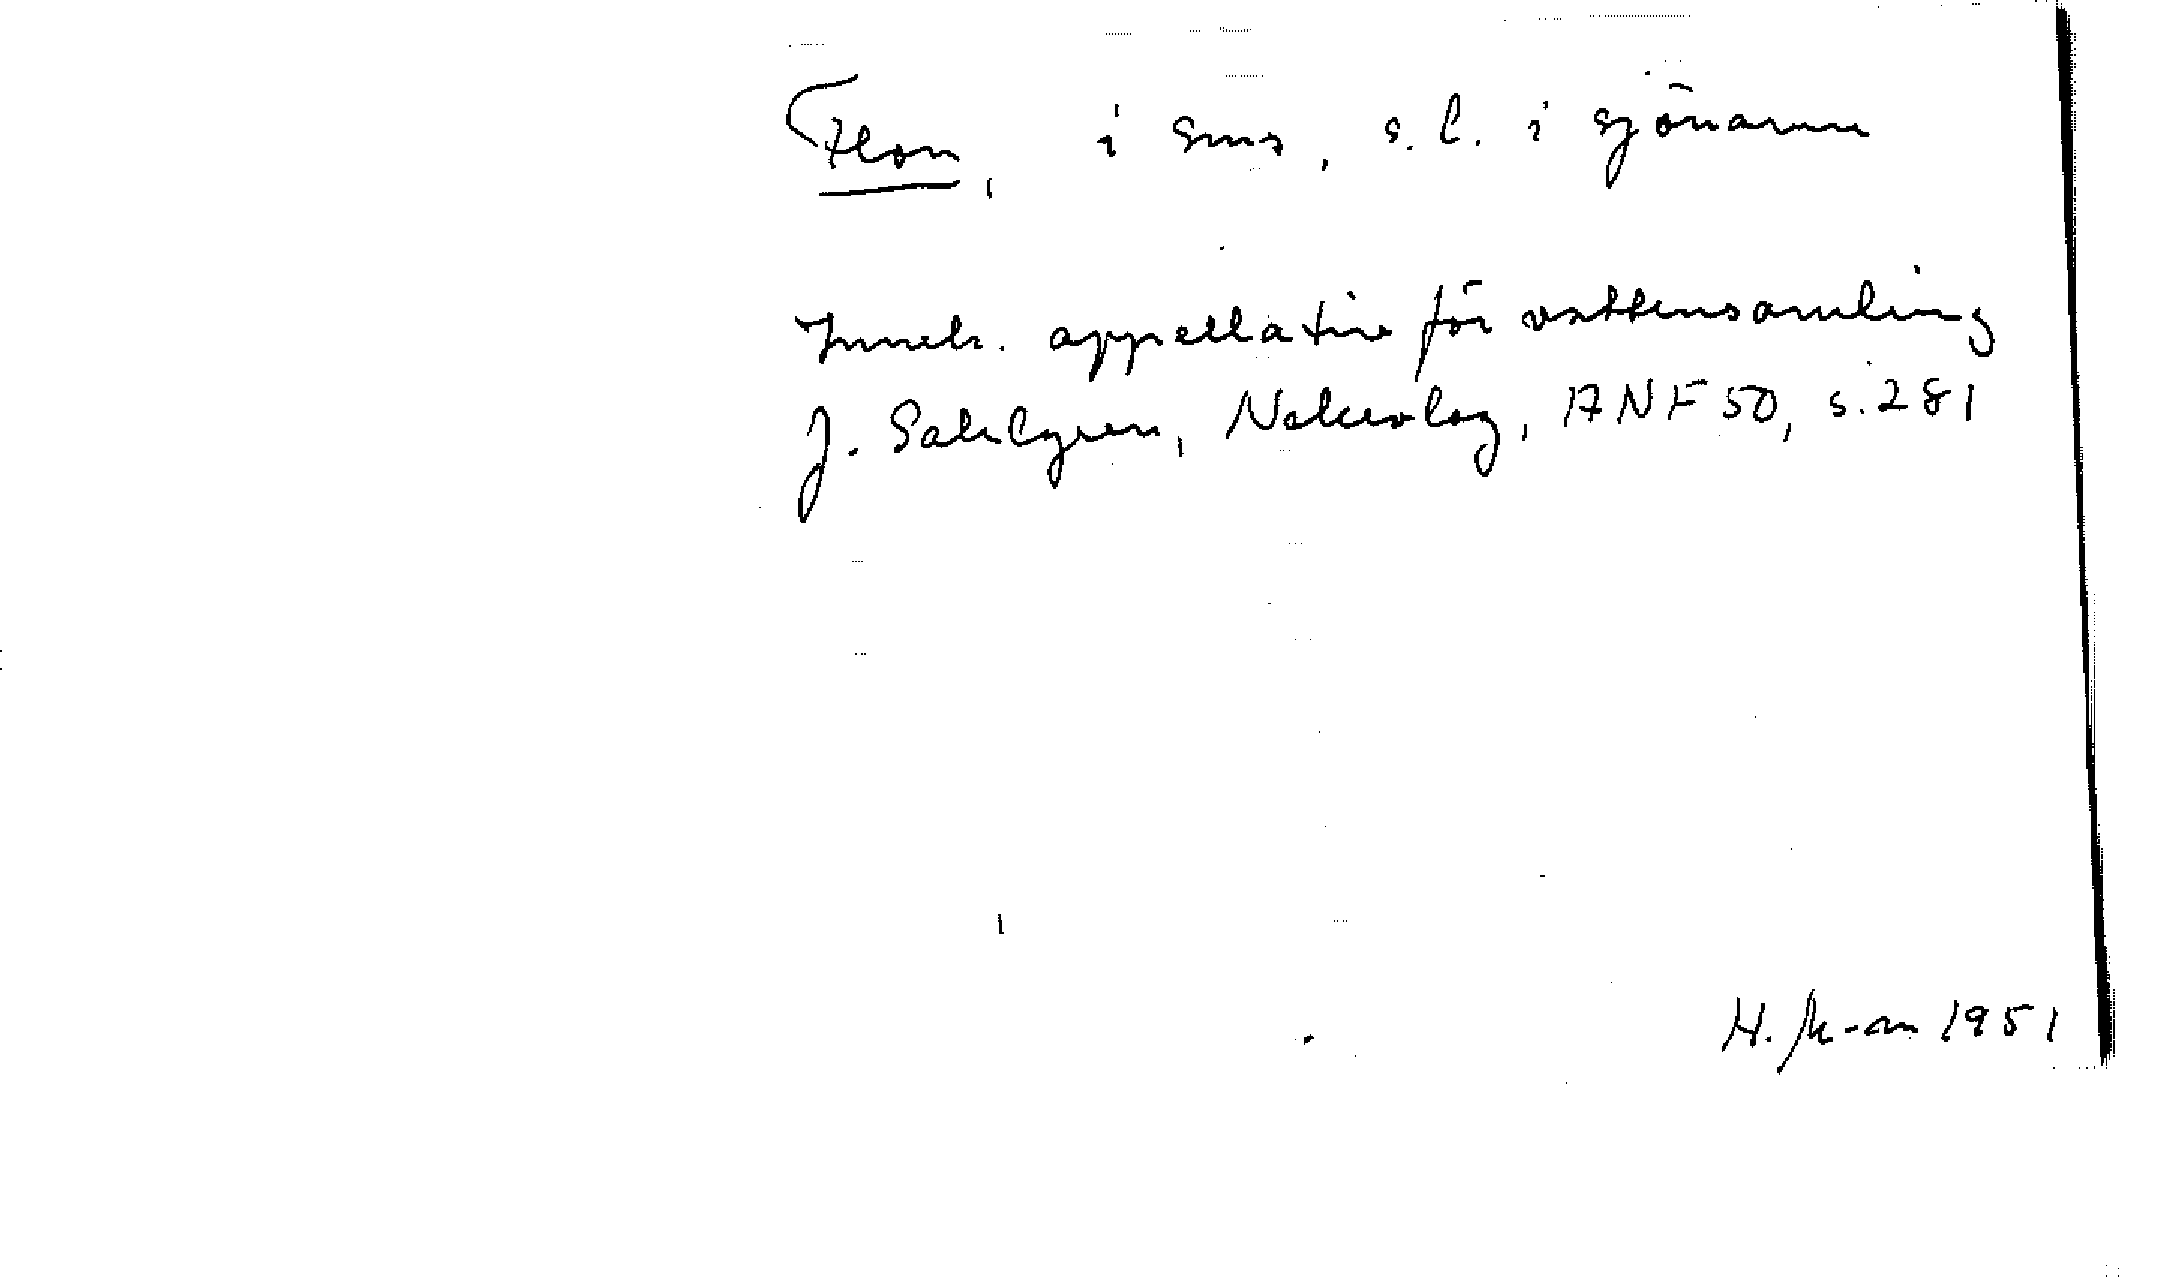 Flon, i sms, s.l. i sjönamn
Inneh. appellativ för vattensamling
J. Sahlgren, Nekrolog, ANF 50, s. 281
H. 1951